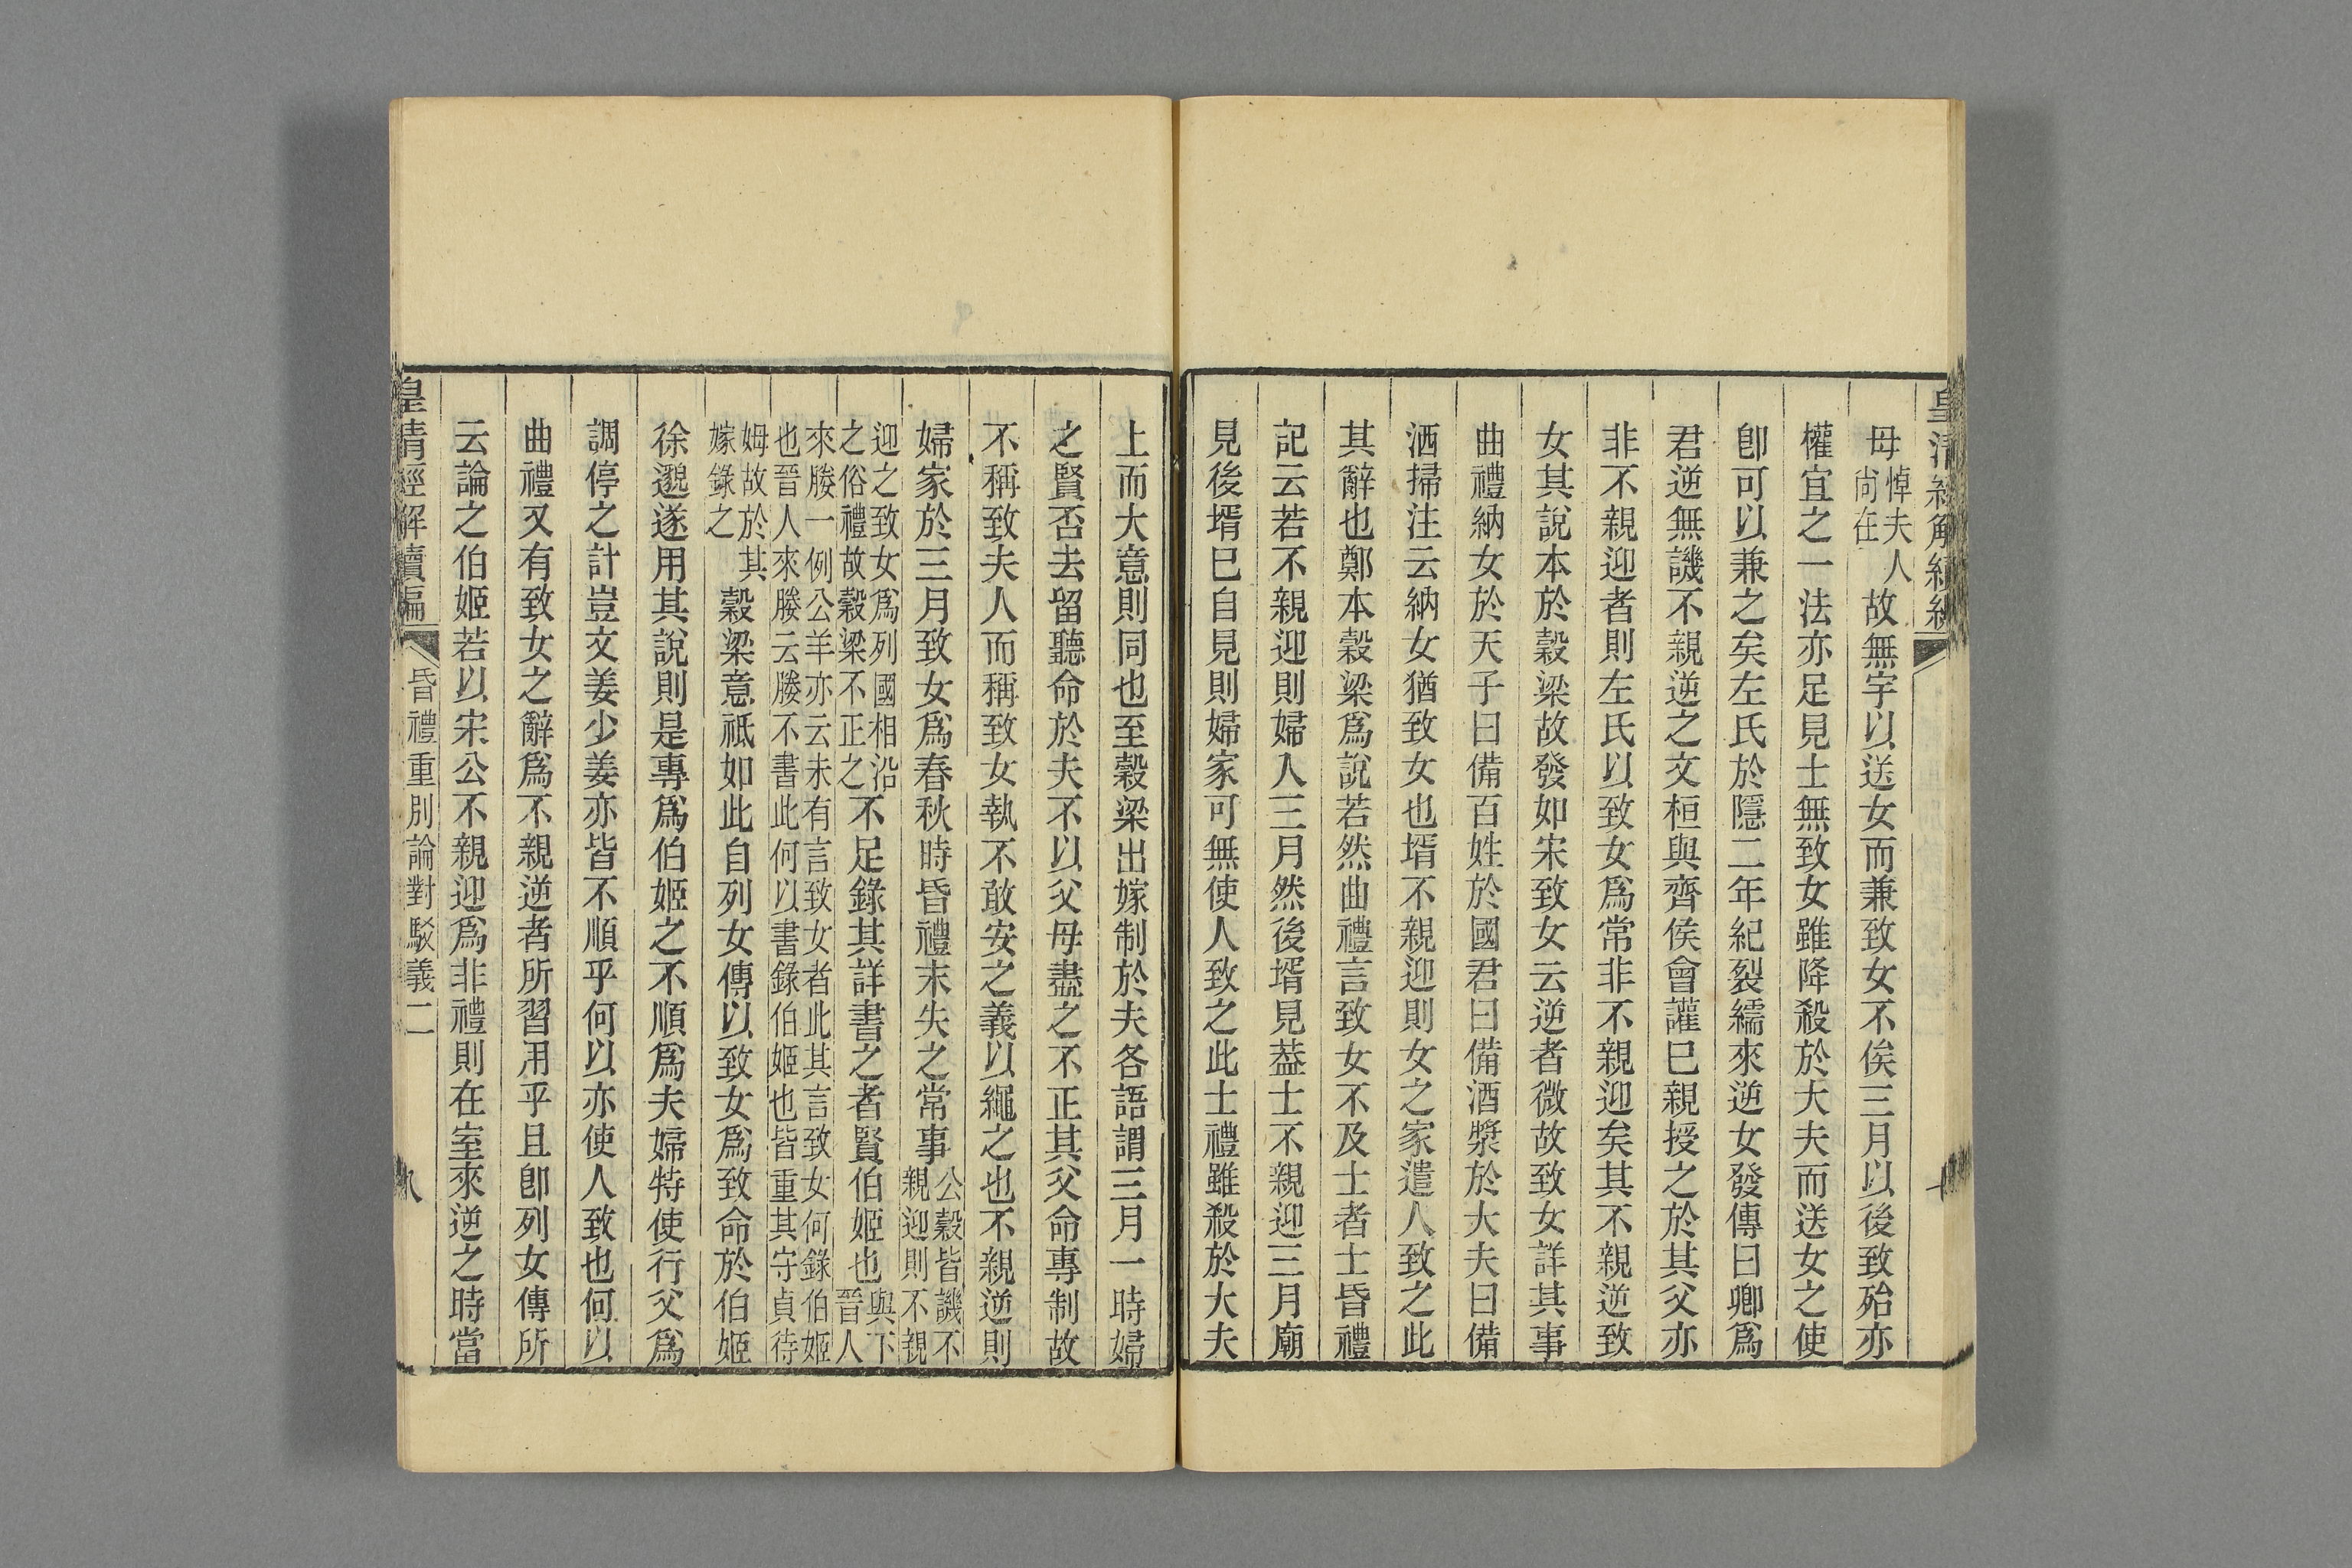 皇清經解續編
母悼夫人尚在故無宇以送女而兼致女不俟三月以後致殆亦
權宜之一法亦足見士無致女雖降殺於大夫而送女之使
卽可以兼之矣左氏於隱二年紀裂繻來逆女發傳曰卿爲
君逆無譏不親逆之文桓與齊侯會讙巳親授之於其父亦
非不親迎者則左氏以致女爲常非不親迎矣其不親逆致
女其說本於穀梁故發如宋致女云逆者微故致女詳其事
曲禮納女於天子曰備百姓於國君曰備酒漿於大夫曰備
洒掃注云納女猶致女也壻不親迎則女之家遣人致之此
其辭也鄭本穀梁爲說若然曲禮言致女不及士者士昏禮
記云若不親迎則婦人三月然後壻見葢士不親迎三月廟
見後壻巳自見則婦家可無使人致之此士禮雖殺於大夫
上而大意則同也至穀梁出嫁制於夫各語謂三月一時婦
之賢否去留聽命於夫不以父母盡之不正其父命專制故
不稱致夫人而稱致女執不敢安之義以繩之也不親逆則
婦家於三月致女爲春秋時昏禮末失之常事公穀皆譏不親迎則不親
迎之致女爲列國相沿之俗禮故穀梁不正之不足錄其詳書之者賢伯姬也與下晉人
來媵一例公羊亦云未有言致女者此其言致女何錄伯姬
也晉人來媵云媵不書此何以書錄伯姬也皆重其守貞待
姆故於其嫁錄之穀梁意祗如此自列女傳以致女爲致命於伯姬
徐邈遂用其說則是專爲伯姬之不順爲夫婦特使行父爲
調停之計豈文姜少姜亦皆不順乎何以亦使人致也何以
曲禮又有致女之辭爲不親逆者所習用乎且卽列女傳所
云論之伯姬若以宋公不親迎爲非禮則在室來逆之時當
皇清經解續編 昏禮重別論對駁義二 九